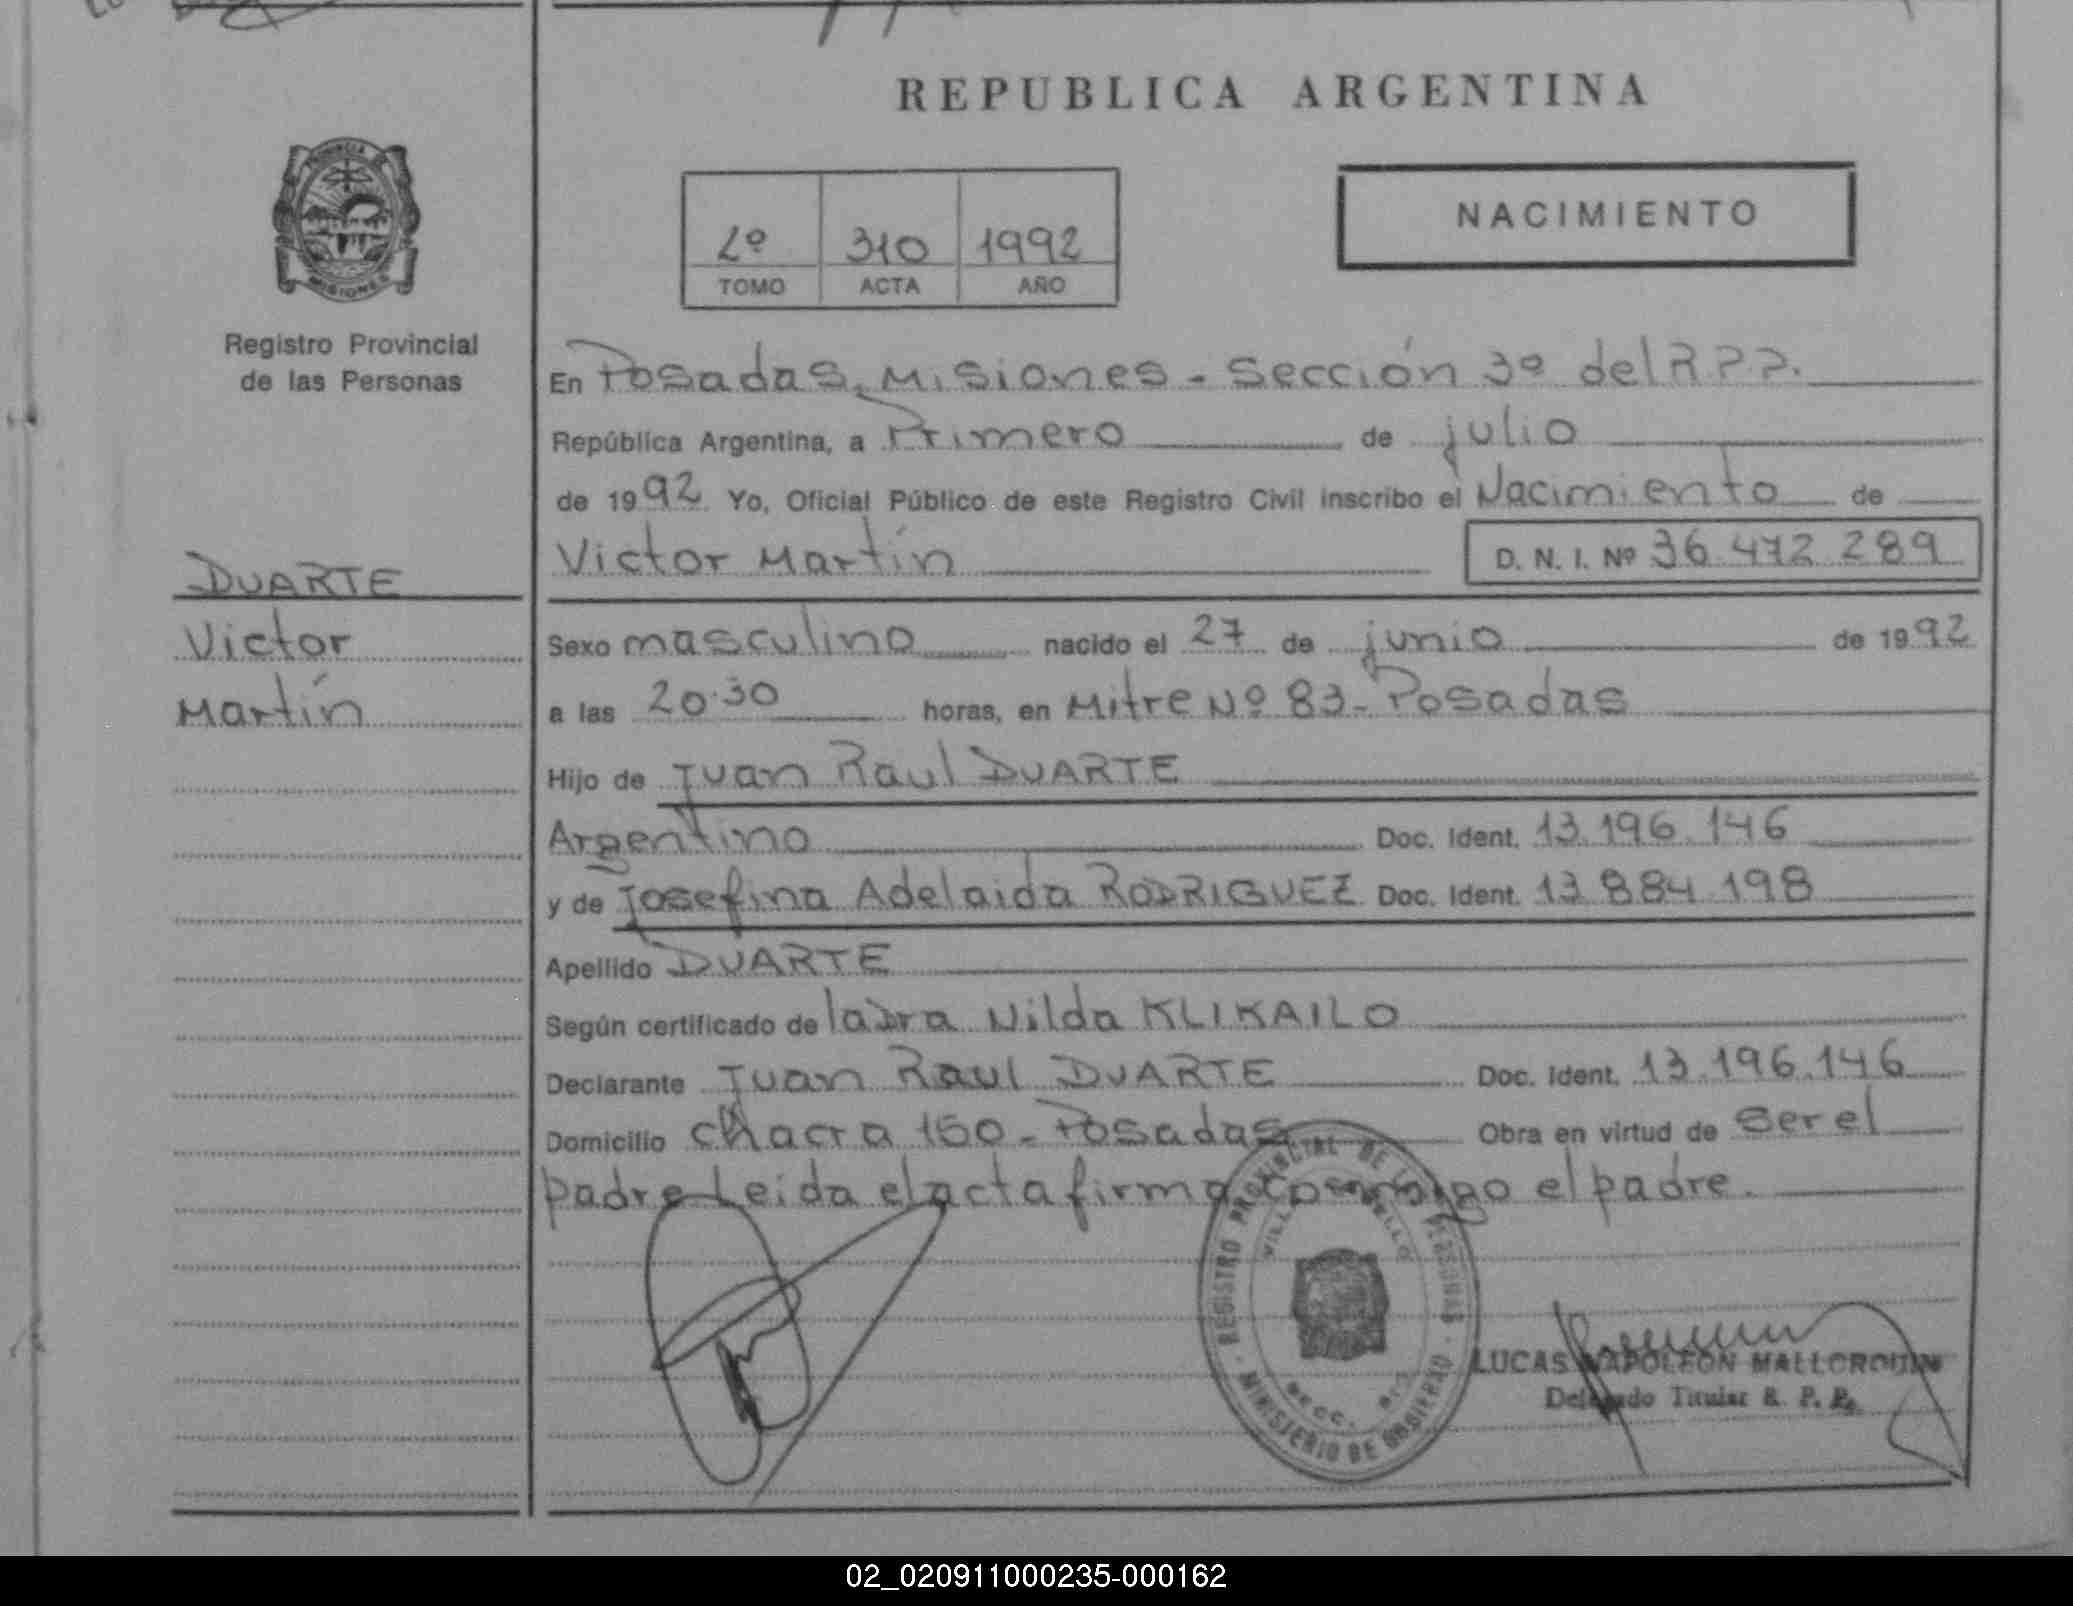 REPUBLICA ARGENTINA
PROVINCIA DE
MISIONES
Registro Provincial
de las Personas
2º 310 1992
TOMO ACTA AÑO
NACIMIENTO
En Posadas, Misiones - Sección 3º del R.P.P.
República Argentina, a Primero de julio
de 1992 Yo, Oficial Público de este Registro Civil inscribo el Nacimiento de
Victor Martín D. N. I. Nº 36.472.289
DUARTE
Victor
Martín
Sexo masculino nacido el 27 de junio de 1992
a las 20.30 horas, en Mitre Nº 83 - Posadas
Hijo de Juan Raul DUARTE
Argentino Doc. Ident. 13.196.146
y de Josefina Adelaida RODRIGUEZ Doc. Ident. 13.884.198
Apellido DUARTE
Según certificado de la Dra Nilda KLIKAILO
Declarante Juan Raul DUARTE Doc. Ident. 13.196.146
Domicilio chacra 150 - Posadas Obra en virtud de ser el
padre Leida el acta firma conmigo el padre.
REGISTRO PROVINCIAL DE LAS PERSONAS
MINISTERIO DE GOBIERNO
LUCAS NAPOLEON MALLORQUIN
Delegado Titular R. P. P.
02_020911000235-000162